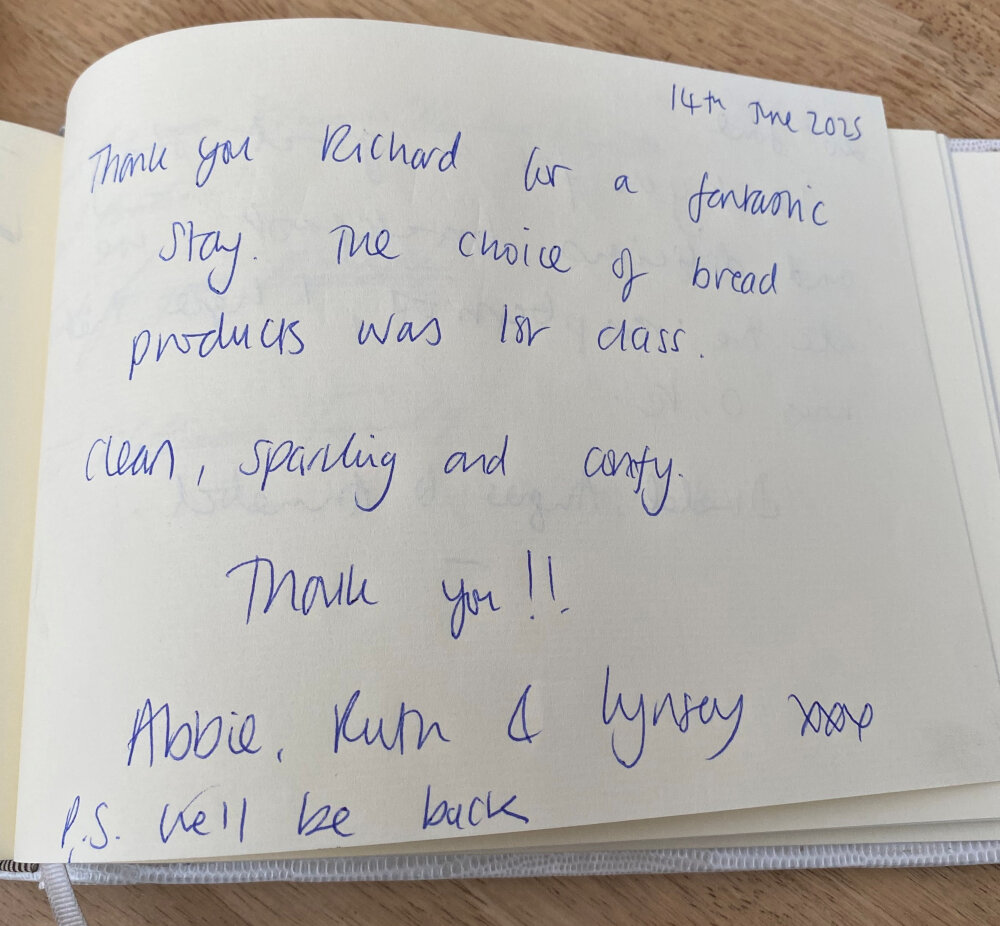 14th June 2025
Thank you Richard for a fantastic
stay. The choice of bread
products was 1st class.
Clean, sparkling and comfy.
Thank you!!
Abbie, Ruth & Lynsey xxxx
P.S. We'll be back